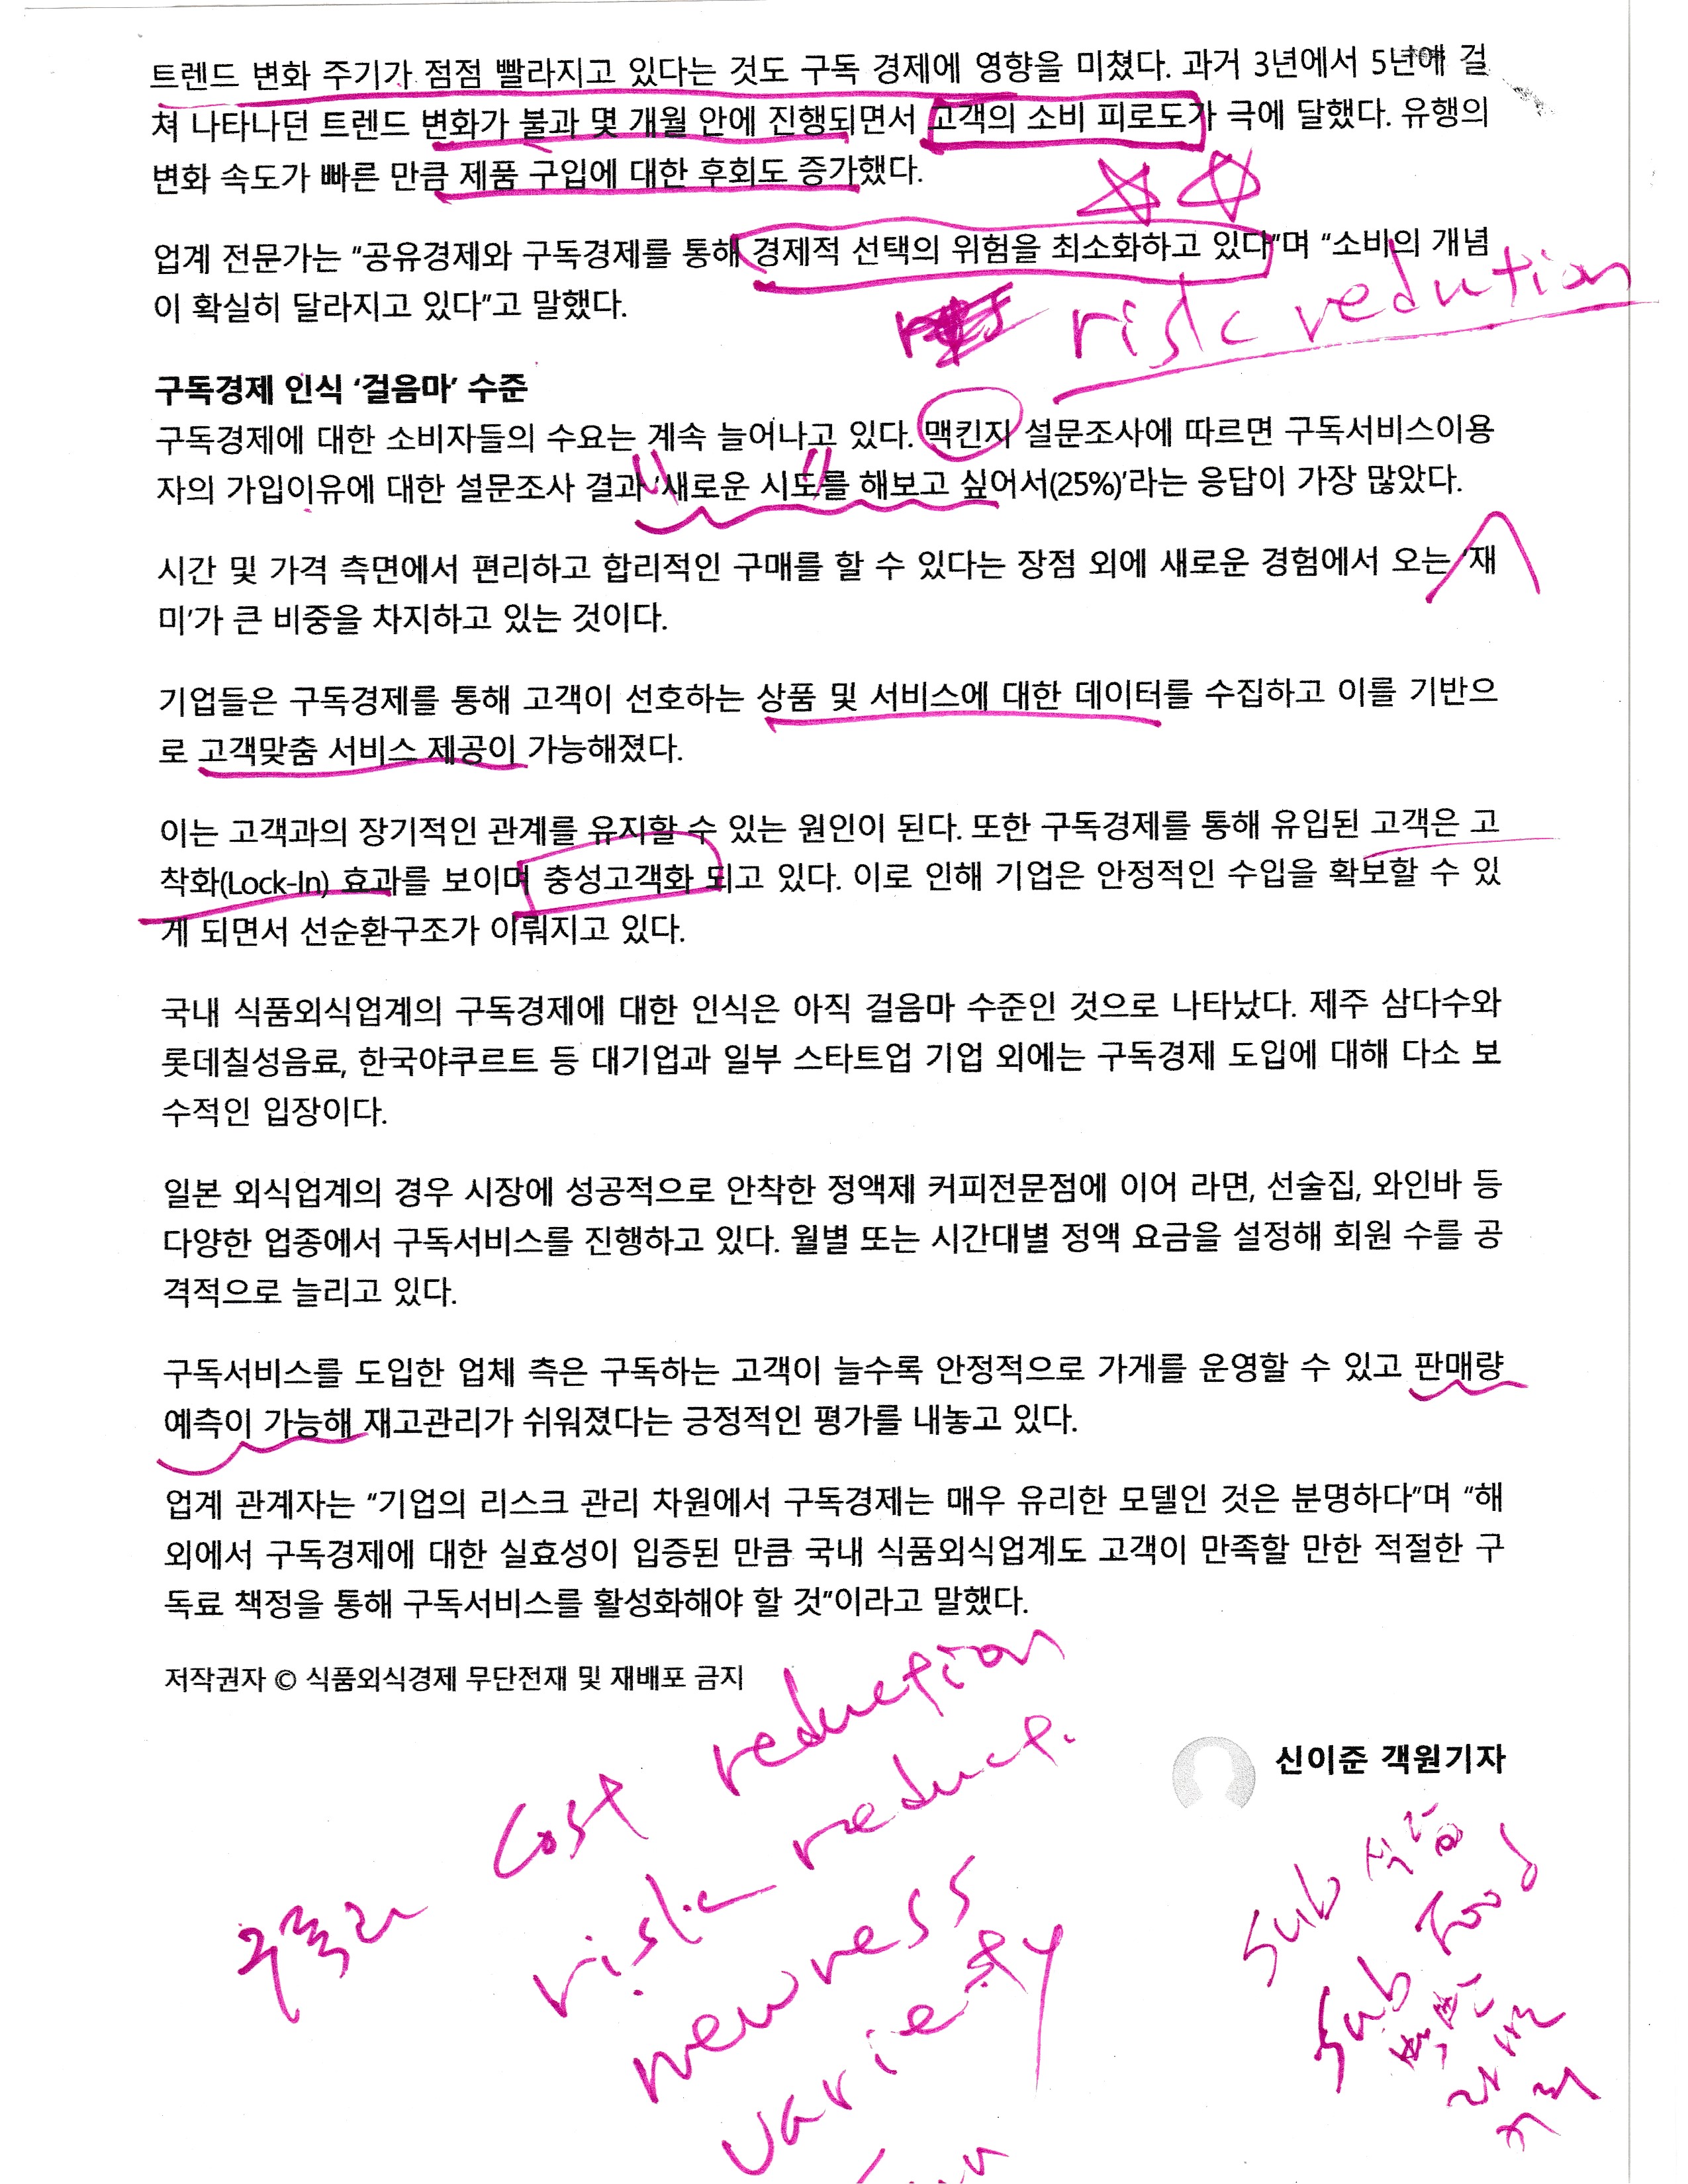 트렌드 변화 주기가 점점 빨라지고 있다는 것도 구독 경제에 영향을 미쳤다. 과거 3년에서 5년에 걸
쳐 나타나던 트렌드 변화가 불과 몇 개월 안에 진행되면서 고객의 소비 피로도가 극에 달했다. 유행의
변화 속도가 빠른 만큼 제품 구입에 대한 후회도 증가했다.
업계 전문가는 “공유경제와 구독경제를 통해 경제적 선택의 위험을 최소화하고 있다”며 “소비의 개념
이 확실히 달라지고 있다”고 말했다.
risk redution
구독경제 인식 ‘걸음마’ 수준
구독경제에 대한 소비자들의 수요는 계속 늘어나고 있다. 맥킨지 설문조사에 따르면 구독서비스이용
자의 가입이유에 대한 설문조사 결과 ‘새로운 시도를 해보고 싶어서(25%)’라는 응답이 가장 많았다.
시간 및 가격 측면에서 편리하고 합리적인 구매를 할 수 있다는 장점 외에 새로운 경험에서 오는 ‘재
미’가 큰 비중을 차지하고 있는 것이다.
기업들은 구독경제를 통해 고객이 선호하는 상품 및 서비스에 대한 데이터를 수집하고 이를 기반으
로 고객맞춤 서비스 제공이 가능해졌다.
이는 고객과의 장기적인 관계를 유지할 수 있는 원인이 된다. 또한 구독경제를 통해 유입된 고객은 고
착화(Lock-In) 효과를 보이며 충성고객화 되고 있다. 이로 인해 기업은 안정적인 수입을 확보할 수 있
게 되면서 선순환구조가 이뤄지고 있다.
국내 식품외식업계의 구독경제에 대한 인식은 아직 걸음마 수준인 것으로 나타났다. 제주 삼다수와
롯데칠성음료, 한국야쿠르트 등 대기업과 일부 스타트업 기업 외에는 구독경제 도입에 대해 다소 보
수적인 입장이다.
일본 외식업계의 경우 시장에 성공적으로 안착한 정액제 커피전문점에 이어 라면, 선술집, 와인바 등
다양한 업종에서 구독서비스를 진행하고 있다. 월별 또는 시간대별 정액 요금을 설정해 회원 수를 공
격적으로 늘리고 있다.
구독서비스를 도입한 업체 측은 구독하는 고객이 늘수록 안정적으로 가게를 운영할 수 있고 판매량
예측이 가능해 재고관리가 쉬워졌다는 긍정적인 평가를 내놓고 있다.
업계 관계자는 “기업의 리스크 관리 차원에서 구독경제는 매우 유리한 모델인 것은 분명하다”며 “해
외에서 구독경제에 대한 실효성이 입증된 만큼 국내 식품외식업계도 고객이 만족할 만한 적절한 구
독료 책정을 통해 구독서비스를 활성화해야 할 것”이라고 말했다.
저작권자 © 식품외식경제 무단전재 및 재배포 금지
신이준 객원기자
cost reduction
risk reduct.
newness
variety
Sub 식품
Sub Food